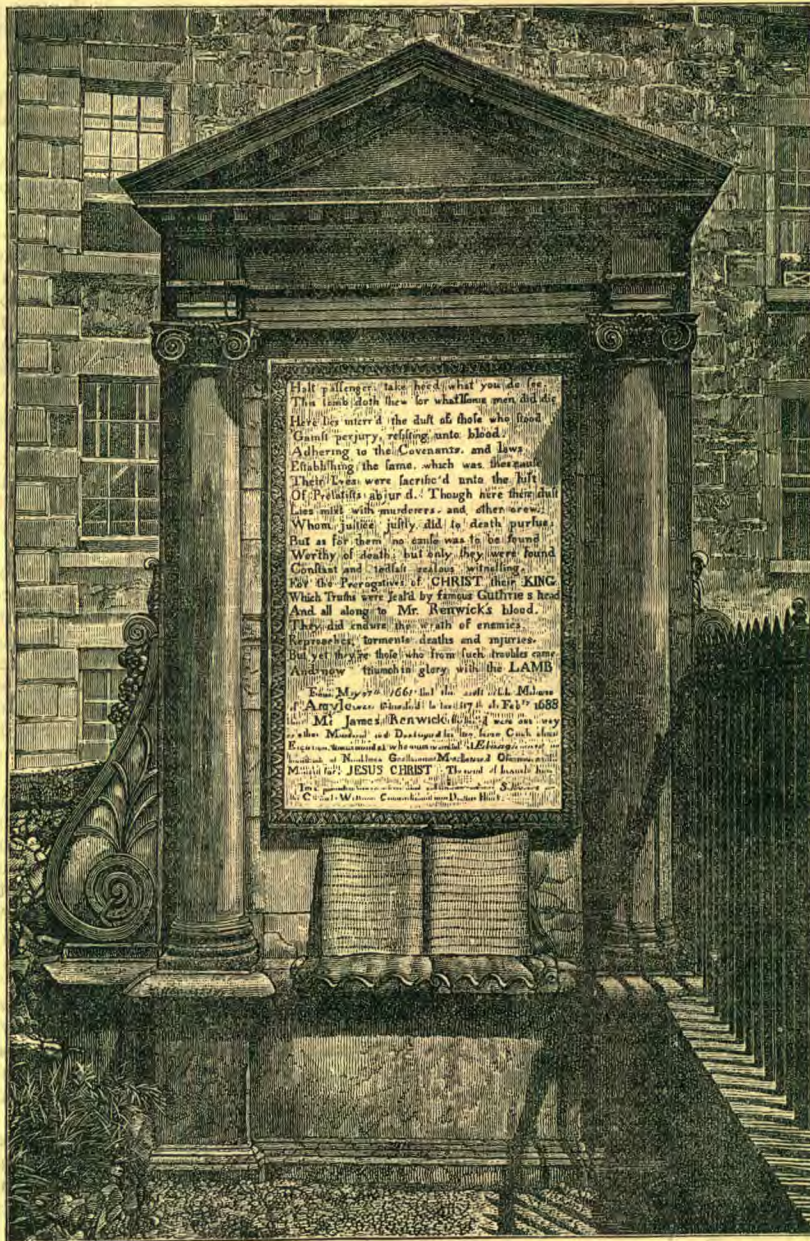 Halt passenger, take heed what you do see,
This tomb doth shew for what some men did die
Here lies interr'd the dust of those who stood
'Gainst perjury, resisting unto blood.
Adhering to the Covenants, and laws
Establishing the same, which was the cause
Their Lives were sacrific'd unto the lust
Of Prelatists abjur'd. Though here their dust
Lies mixt with murderers, and other crew,
Whom justice justly did to death pursue:
But as for them no cause was to be found
Worthy of death, but only they were found
Constant and stedfast zealous witnessing,
For the Prerogatives of CHRIST their KING.
Which Truths were seal'd by famous Guthrie's head
And all along to Mr. Renwick's blood.
They did endure the wrath of enemies,
Reproaches, torments, deaths and injuries.
But yet they're those who from such troubles came
And now triumph in glory with the LAMB
From May 27th 1661 that the
of Argyle 17th of Feby 1688
Mr James Renwick were one way
or other Murdered and Destroyed for the same Cause about

Noblemen Gentlemen Ministers and Others
for JESUS CHRIST. The